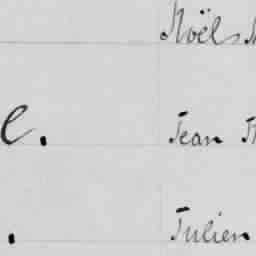 Noël
e. Jean
. Julien